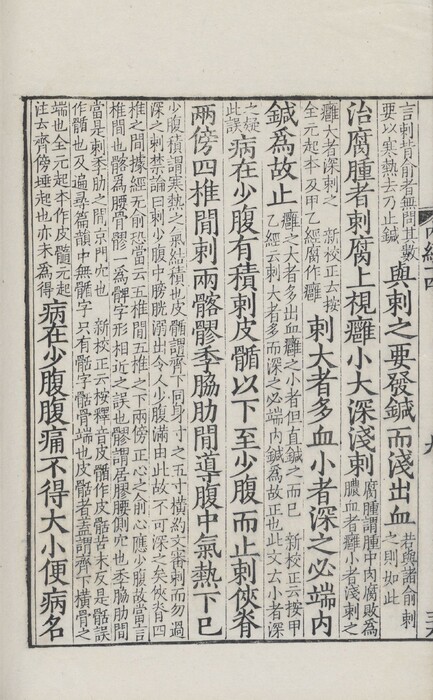 言刺背俞者無問其數
要以寒熱去乃止鍼
與刺之要發鍼而淺出血
若與諸俞刺
之則如此
治腐腫者刺腐上視癰小大深淺刺
腐腫謂腫中肉腐敗爲
膿血者癰小者淺刺之
癰大者深刺之 新校正云按
全元起本及甲乙經腐作癰
刺大者多血小者深之必端内
鍼爲故止
癰之大者多出血癰之小者但直鍼之而已 新校正云按甲
乙經云刺大者多而深之必端内鍼爲故正也此文云小者深
之疑
此誤
病在少腹有積刺皮䯏以下至少腹而止刺俠脊
兩傍四椎閒刺兩髂髎季脇肋閒導腹中氣熱下已
少腹積謂寒熱之氣結積也皮䯏謂齊下同身寸之五寸橫約文審刺而勿過
深之刺禁論曰刺少腹中膀胱溺出令人少腹滿由此故不可深之矣俠脊四
椎之間據經無俞恐當云五椎間五椎之下兩傍正心之俞心應少腹故當言
椎間也髂爲腰骨髎一爲髀字形相近之誤也髎謂居髎腰側穴也季脇肋間
當是刺季肋之間京門穴也 新校正云按釋音皮䯏作皮骷苦末反是骷誤
作䯏也及遍尋篇韻中無䯏字只有骷字骷骨端也皮骷者蓋謂齊下橫骨之
端也全元起本作皮髓元起
注云齊傍埵起也亦未爲得
病在少腹腹痛不得大小便病名